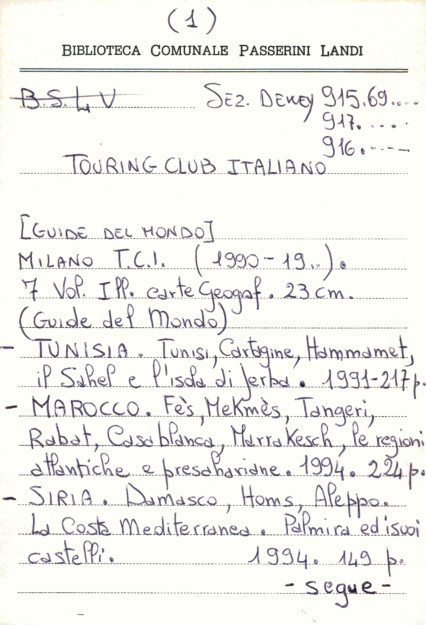 (1)
BIBLIOTECA COMUNALE PASSERINI LANDI
B.S.L V SEZ. DEWEY 915.69....
917.....
916.----
TOURING CLUB ITALIANO
[GUIDE DEL MONDO]
MILANO T.C.I. (1990-19..).
7 Vol. Ill. carte Geogaf. 23 cm.
(Guide del Mondo)
- TUNISIA. Tunisi, Cartagine, Hammamet,
il Sahel e l'isola di Jerba. 1991-217 p.
- MAROCCO. Fès, Mekmès, Tangeri,
Rabat, Casablanca, Marrakesch, le regioni
atlantiche e presahariane. 1994. 224 p.
- SIRIA. Damasco, Homs, Aleppo.
La Costa Mediterranea. Palmira ed i suoi
castelli. 1994. 149 p.
- segue -